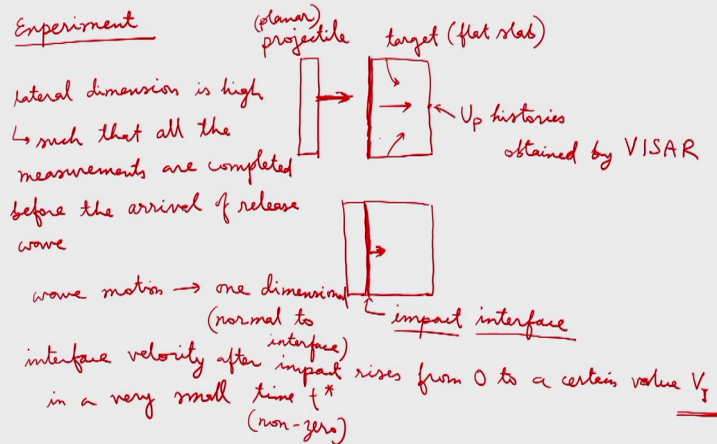 Experiment
(planar)
projectile
target (flat slab)
Lateral dimension is high
↳ such that all the
measurements are completed
before the arrival of release
wave
Up histories
obtained by VISAR
wave motion → one dimensional
(normal to
interface)
impact interface
interface velocity after impact rises from 0 to a certain value V_I
in a very small time t*
(non-zero)